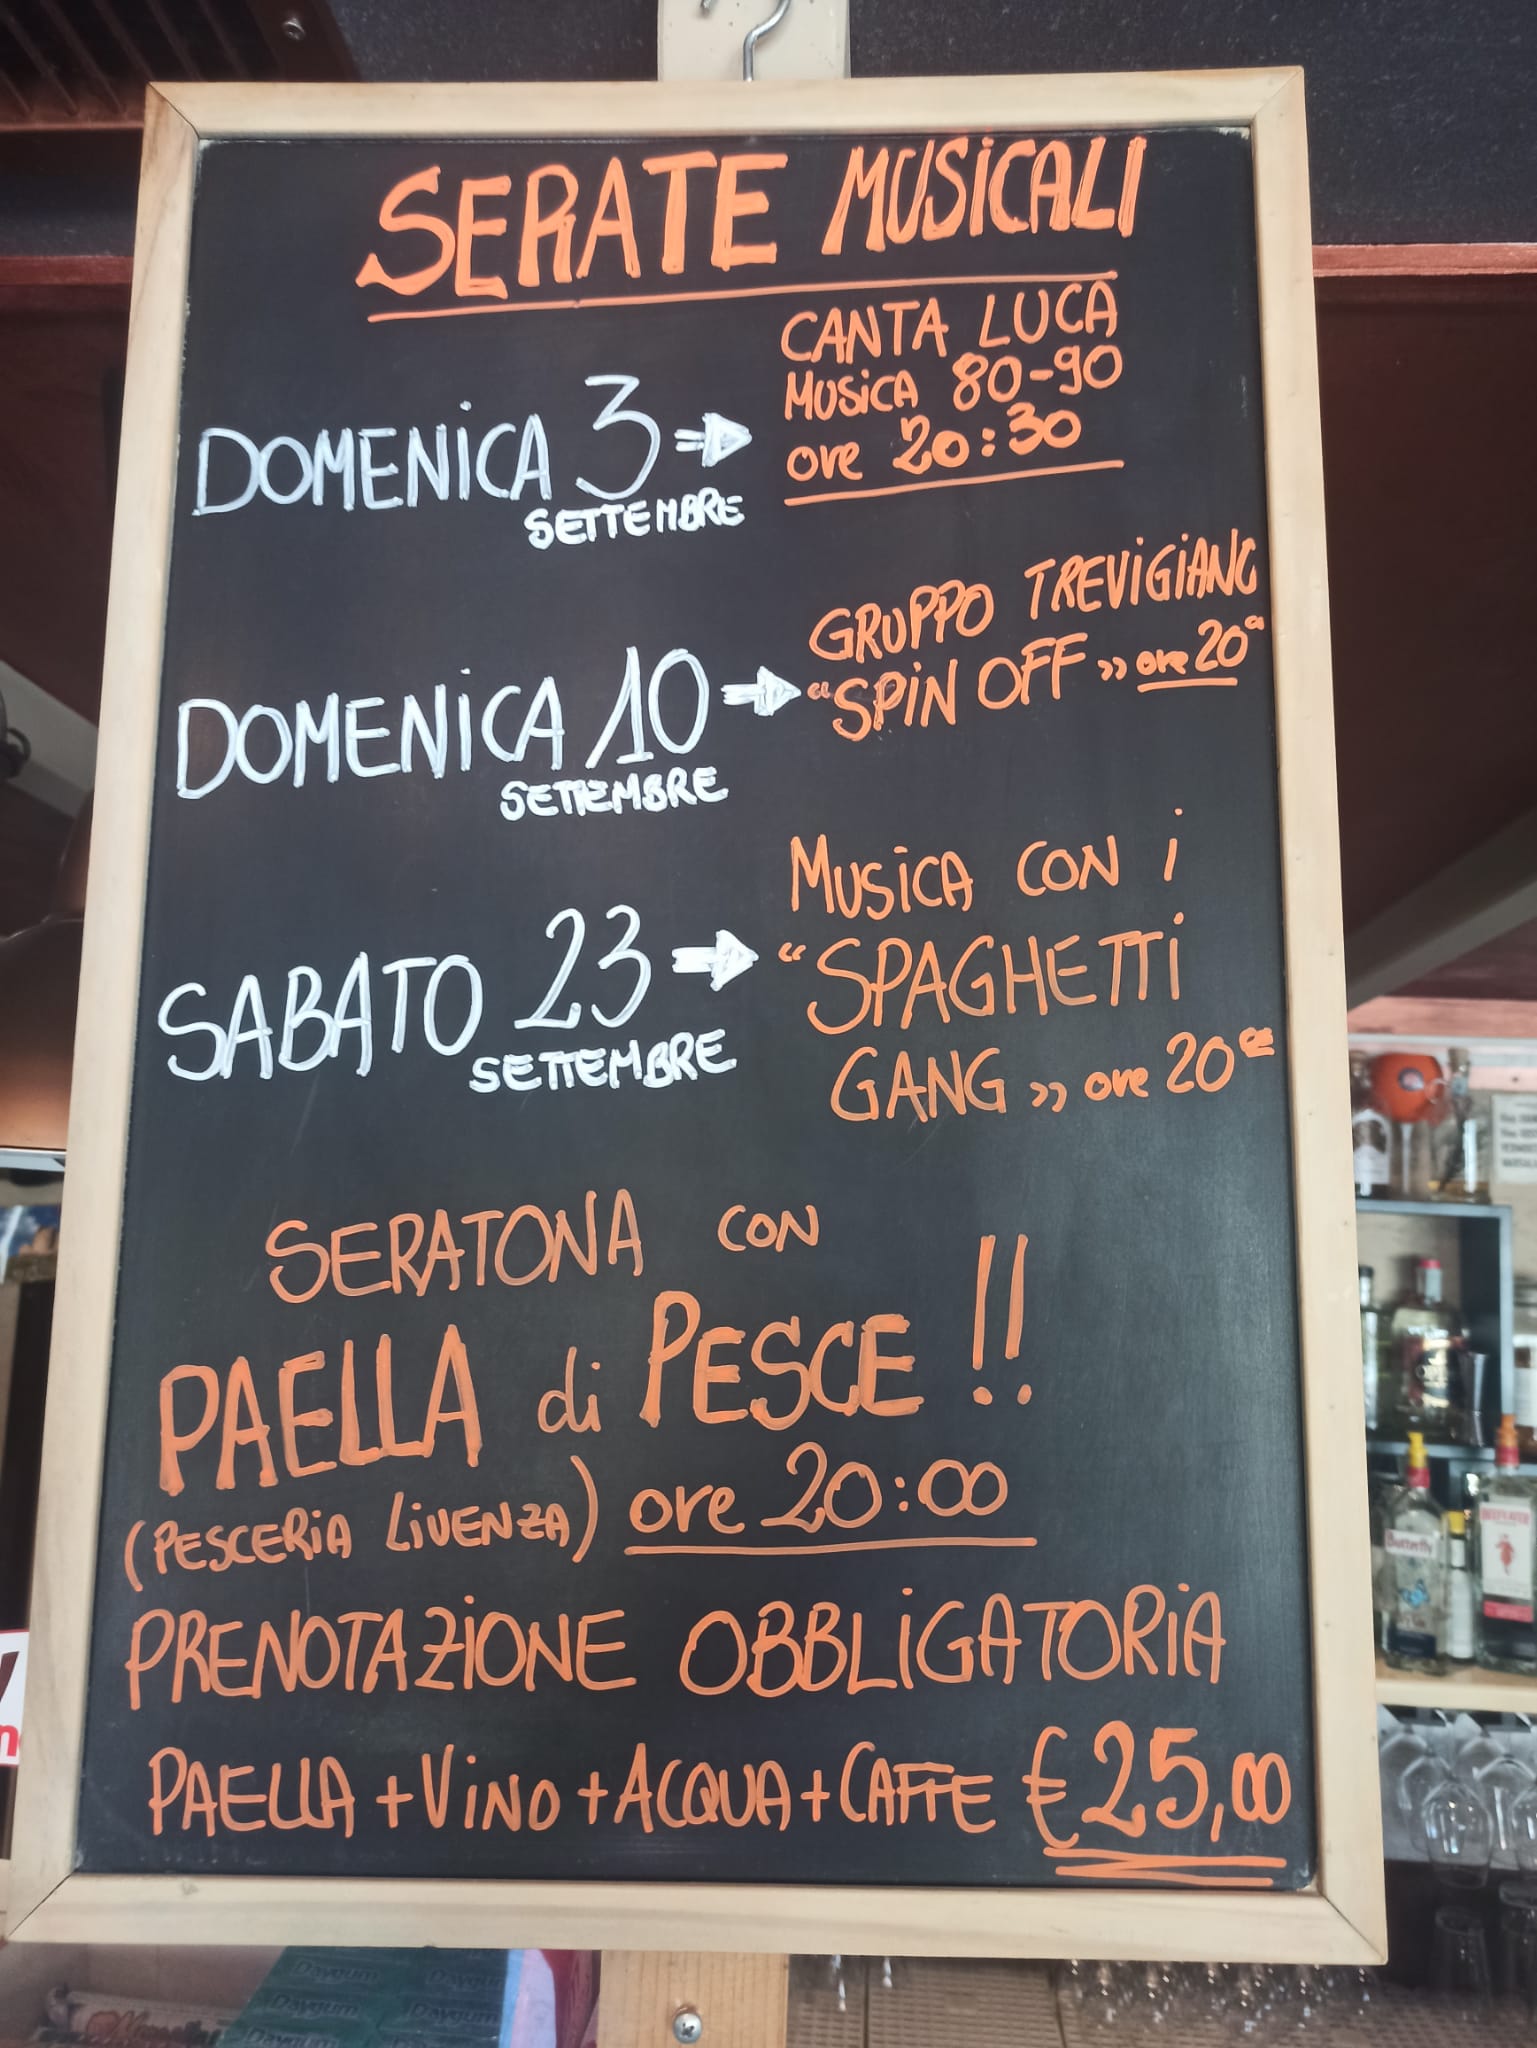 SERATE MUSICALI
DOMENICA 3
SETTEMBRE
CANTA LUCA
MUSICA 80-90
ore 20:30
DOMENICA 10
SETTEMBRE
GRUPPO TREVIGIANO
“SPIN OFF” ore 20
SABATO 23
SETTEMBRE
MUSICA CON i
“SPAGHETTI
GANG” ore 20
SERATONA CON
PAELLA di PESCE !!
(PESCERIA LIVENZA) ore 20:00
PRENOTAZIONE OBBLIGATORIA
PAELLA + VINO + ACQUA + CAFFE € 25,00
Butterfly
BEEFEATER
Daygum
Daygum
Daygum
Daygum